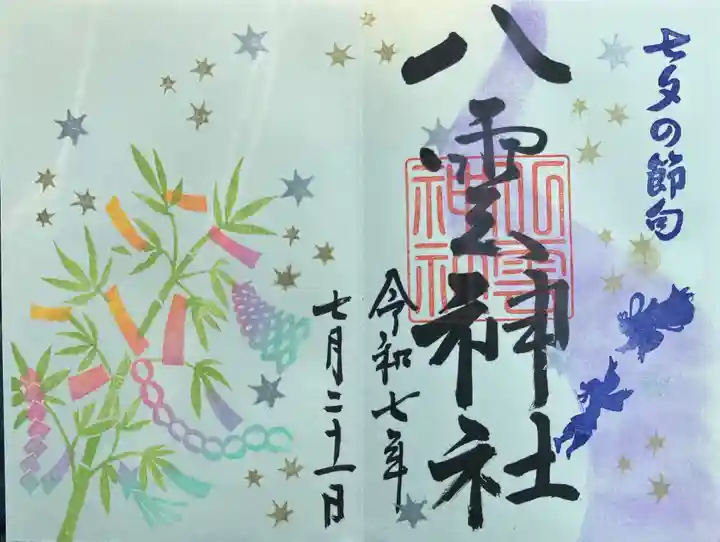 七夕の節句
八雲神社
八雲神社
令和七年
七月二十一日